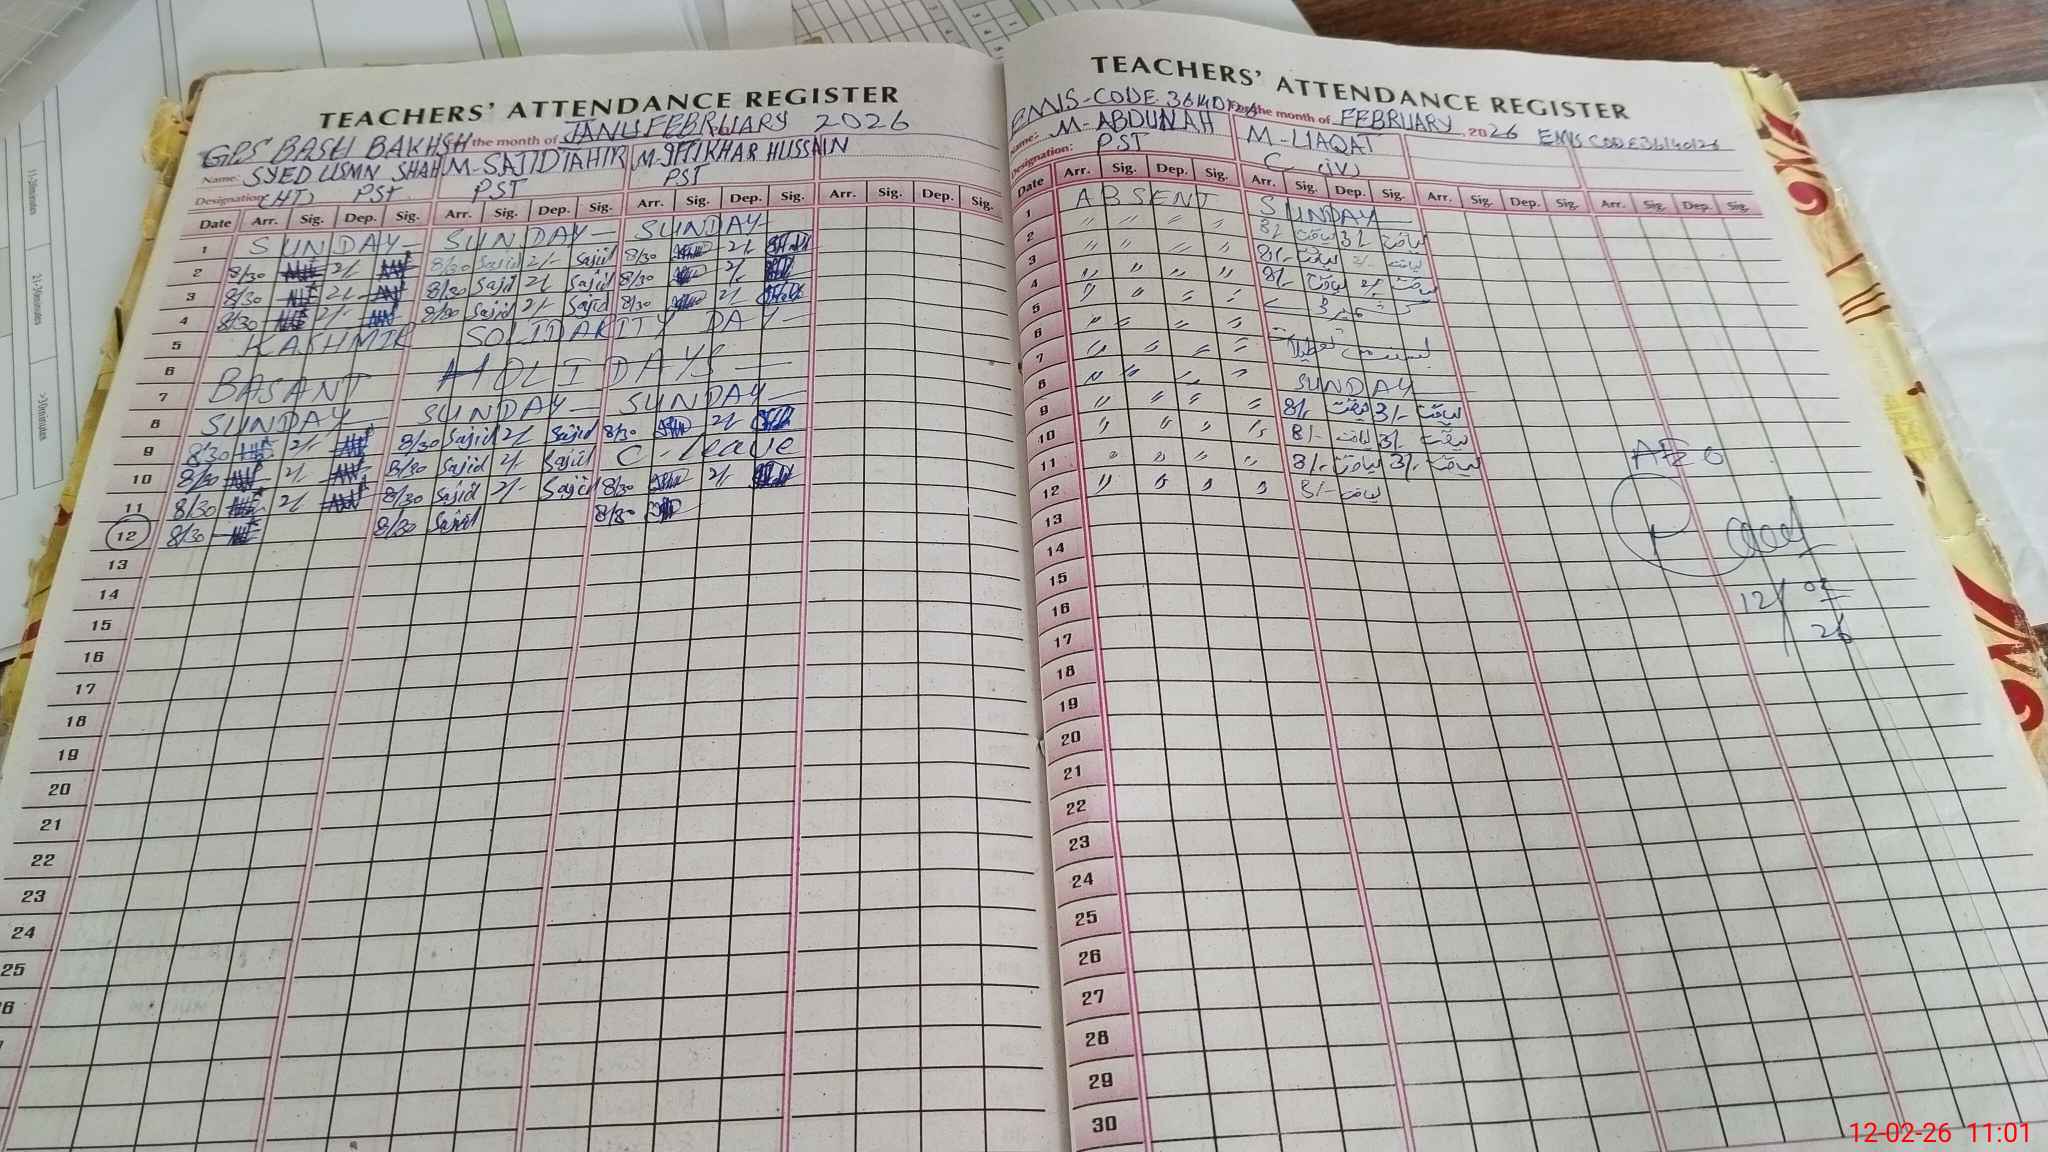 TEACHERS' ATTENDANCE REGISTER
GPS BASU BAKHSH the month of FEBRUARY 2026
Name: SYED USMN SHAH M-SAJID TAHIR M-IFTIKHAR HUSSAIN
Designation: (HT) PST PST PST
Date Arr. Sig. Dep. Sig. Arr. Sig. Dep. Sig. Arr. Sig. Dep. Sig. Arr. Sig. Dep. Sig.
1 SUNDAY- SUNDAY- SUNDAY-
2 8/30 2/- 8/30 Sajid 2/- Sajid 8/30 2/-
3 8/30 2/- 8/30 Sajid 2/- Sajid 8/30 2/-
4 8/30 2/- 8/30 Sajid 2/- Sajid 8/30 2/-
5 KASHMIR SOLIDARITY DAY-
6
7 BASANT HOLIDAYS-
8 SUNDAY- SUNDAY- SUNDAY-
9 8/30 2/- 8/30 Sajid 2/- Sajid 8/30 2/-
10 8/30 2/- 8/30 Sajid 2/- Sajid C-leave
11 8/30 2/- 8/30 Sajid 2/- Sajid 8/30 2/-
12 8/30 8/30 Sajid 8/30
13
14
15
16
17
18
19
20
21
22
23
24
25
TEACHERS' ATTENDANCE REGISTER
EMIS-CODE For the month of FEBRUARY, 2026 EMIS CODE 36140126
Name: M-ABDULLAH M-LIAQAT
Designation: PST C (IV)
Date Arr. Sig. Dep. Sig. Arr. Sig. Dep. Sig. Arr. Sig. Dep. Sig. Arr. Sig. Dep. Sig.
1 ABSENT SUNDAY-
2 " " " " 8/- لیاقت 3/- لیاقت
3 " " " " 8/- لیاقت 2/- لیاقت
4 " " " " 8/- لیاقت 2/- لیاقت
5 " " " " کشمیر ڈے
6 " " " "
7 " " " " بسنت تعطیلات
8 " " " " SUNDAY-
9 " " " " 8/- لیاقت 3/- لیاقت
10 " " " " 8/- لیاقت 3/- لیاقت
11 " " " " 8/- لیاقت 3/- لیاقت
12 " " " " 8/- لیاقت
13
14
15
16
17
18
19
20
21
22
23
24
25
26
27
28
29
30
AEO
12/02/26
11-20minutes
21-30minutes
>30minutes
12-02-26 11:01